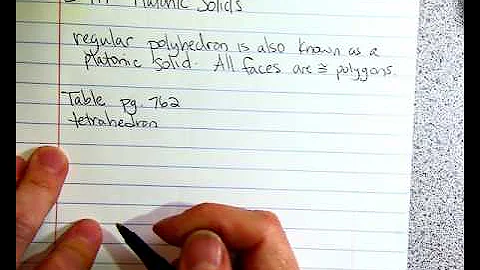 Platonic Solids
regular polyhedron is also known as a
platonic solid. All faces are ≅ polygons.
Table pg. 762
tetrahedron